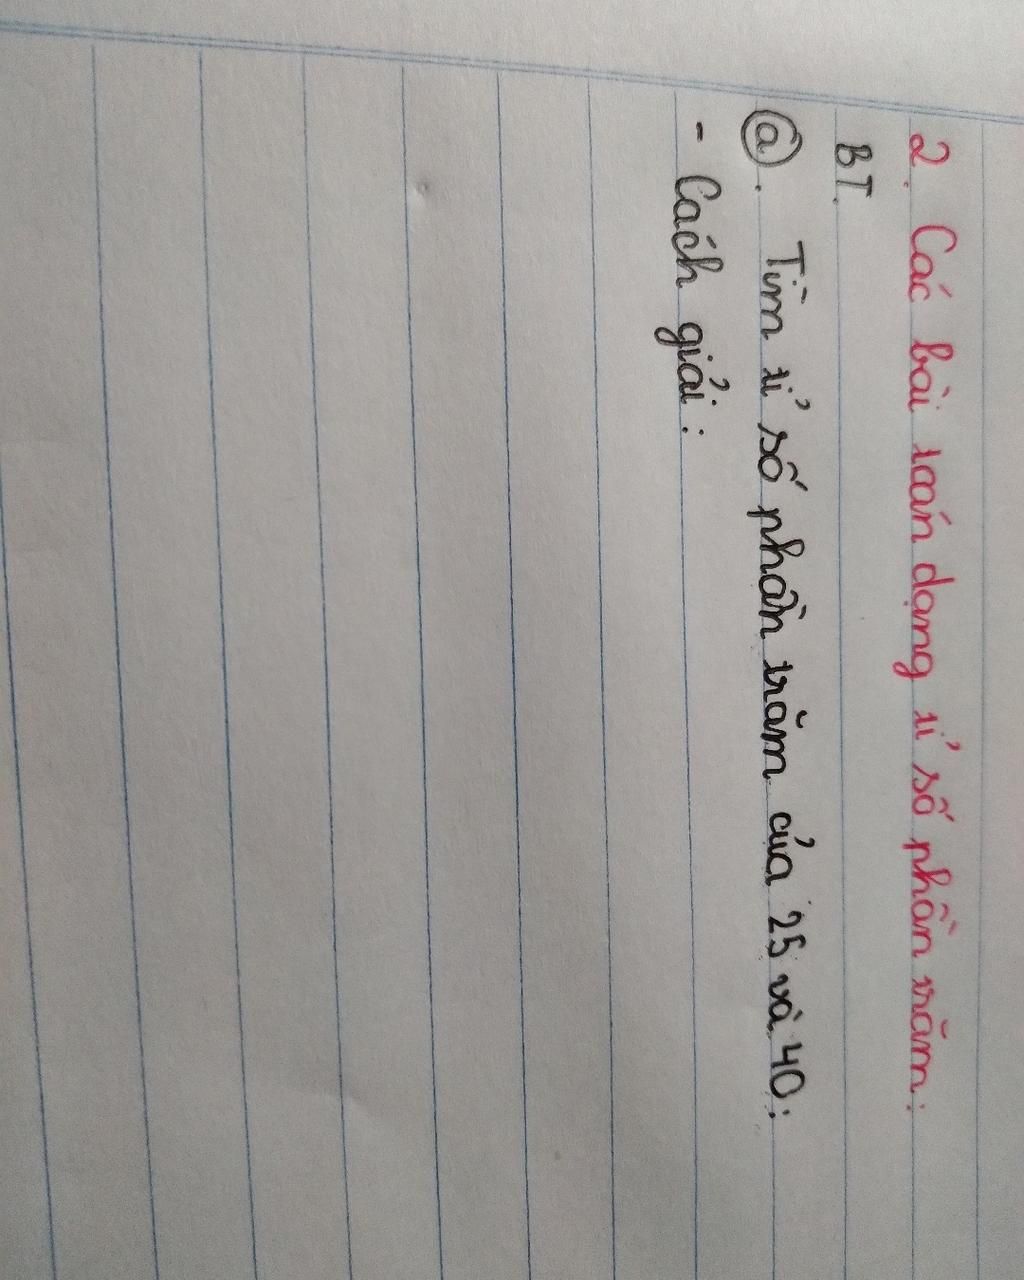 2. Các bài toán dạng tỉ số phần trăm:
BT.
a. Tìm tỉ số phần trăm của 25 và 40:
- Cách giải: